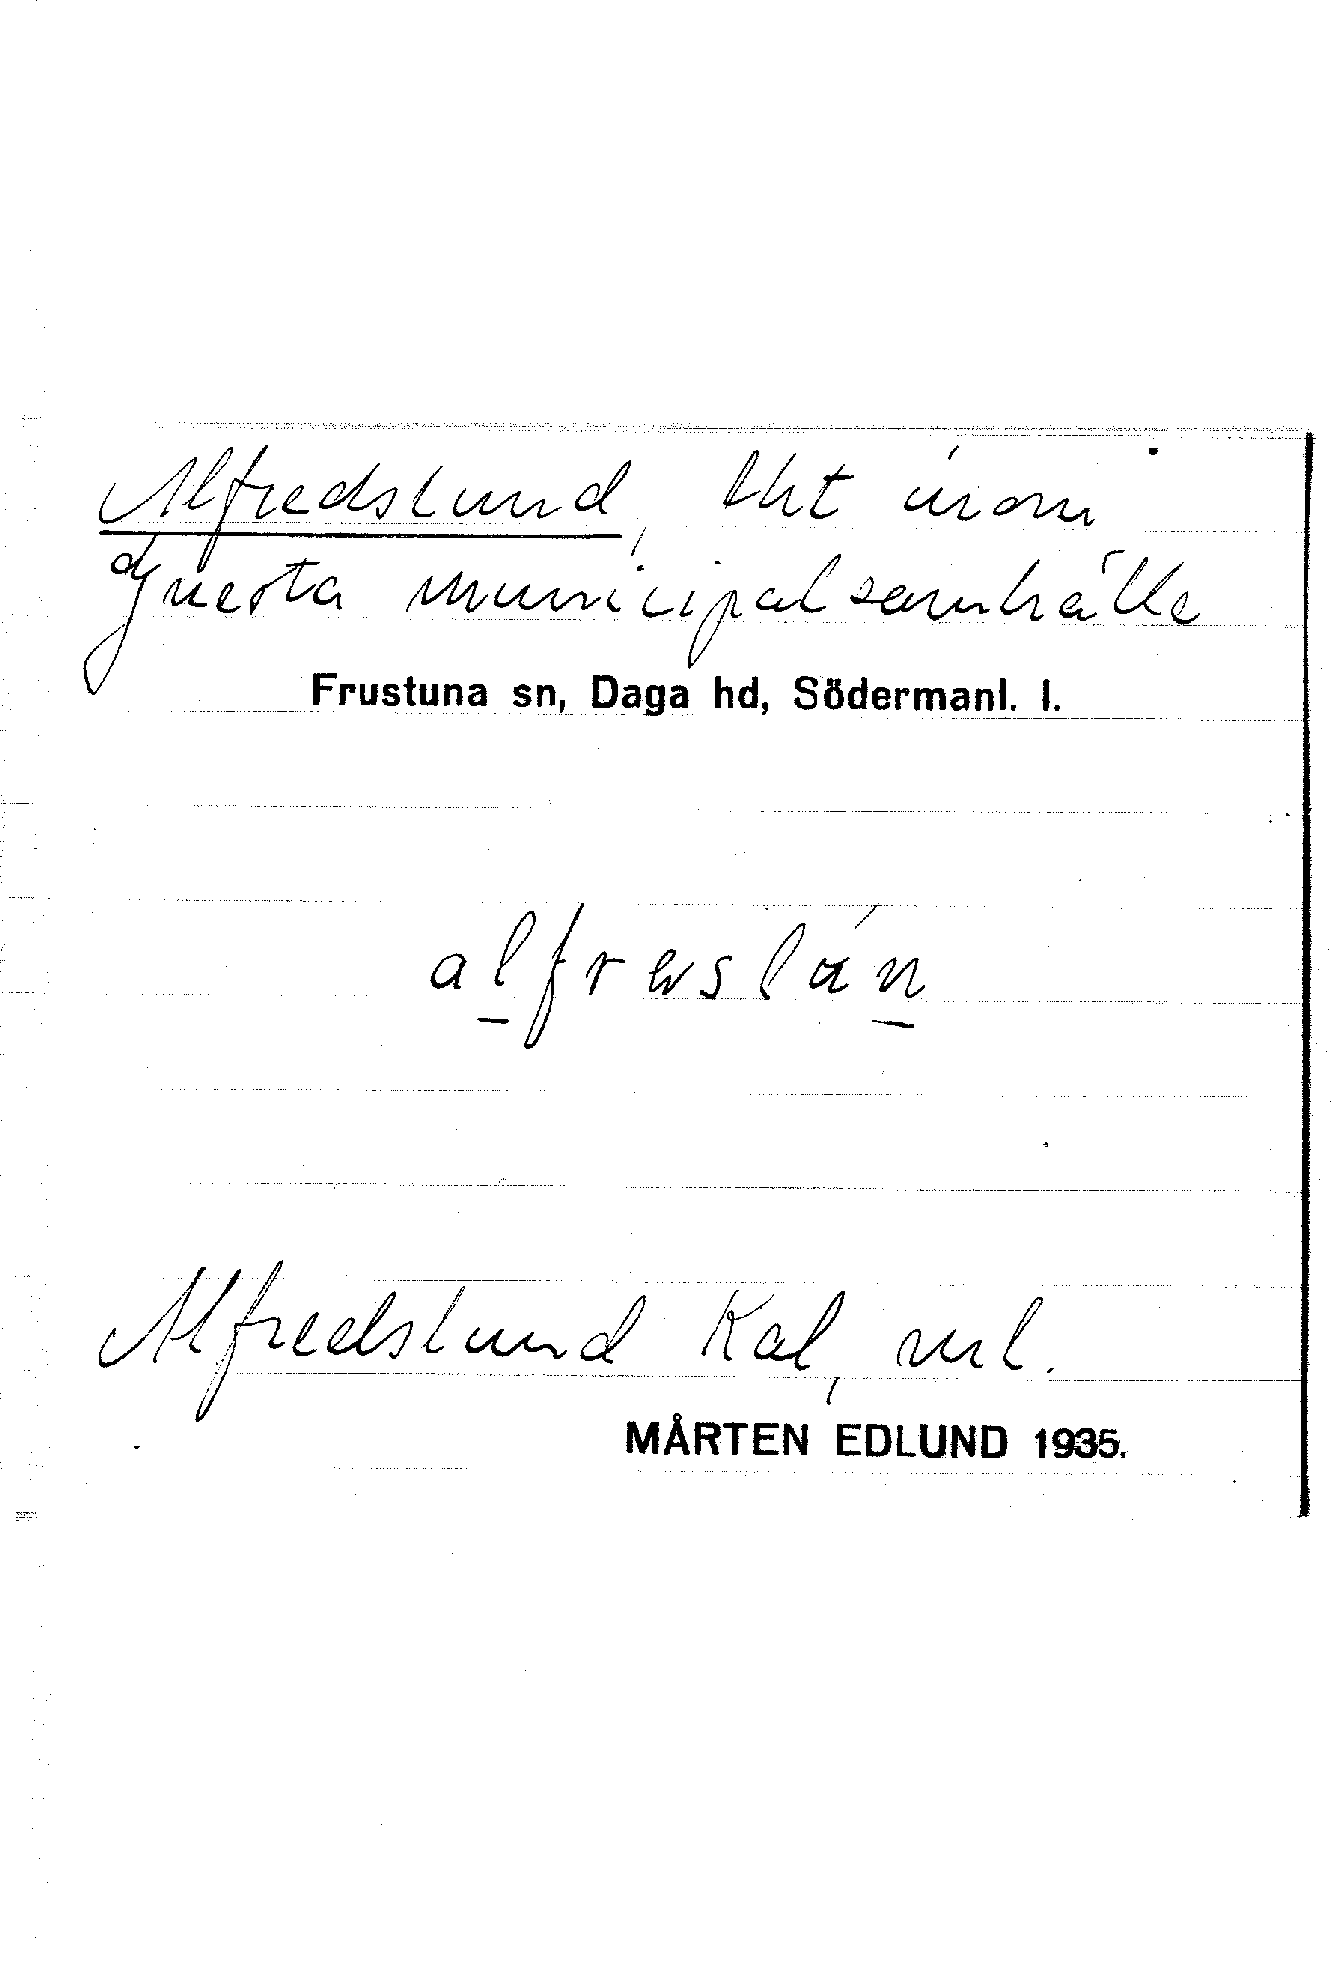 Alfredslund, lht inom
Gnesta municipalsamhälle
Frustuna sn, Daga hd, Södermanl. l.
Alfredslund Kal, ml.
MÅRTEN EDLUND 1935.